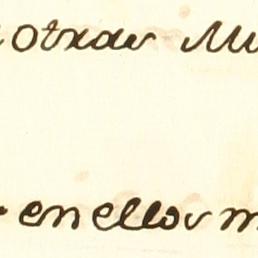 otras
en ellos